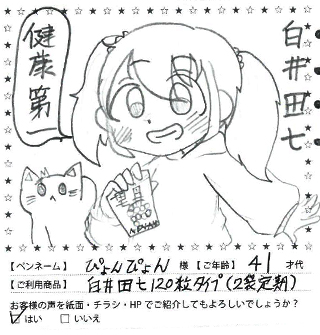 健康第一
白井田七
【ペンネーム】 ぴょんぴょん 様 【ご年齢】 41 才代
【ご利用商品】 白井田七120枚タイプ(2袋定期)
お客様の声を紙面・チラシ・HPでご紹介してもよろしいでしょうか?
☑ はい □ いいえ